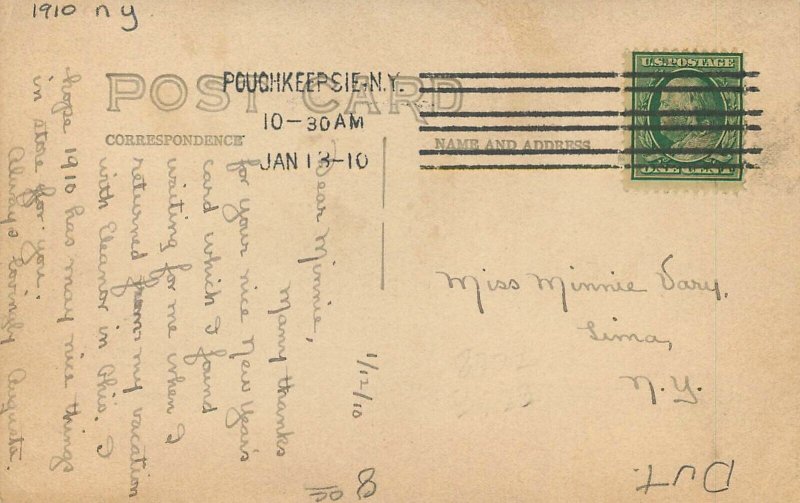 1910 n y
POST CARD
POUGHKEEPSIE, N.Y.
10-30 AM
JAN 13-10
U.S. POSTAGE
ONE CENT
CORRESPONDENCE
NAME AND ADDRESS
1/12/10
Dear Minnie,
Many thanks
for your nice New Year's
card which I found
waiting for me when I
returned from my vacation
with Eleanor in Ohio. I
hope 1910 has may nice things
in store for you.
Always lovingly Augusta.
Miss Minnie Vary,
Lima,
N.Y.
Dut.
8